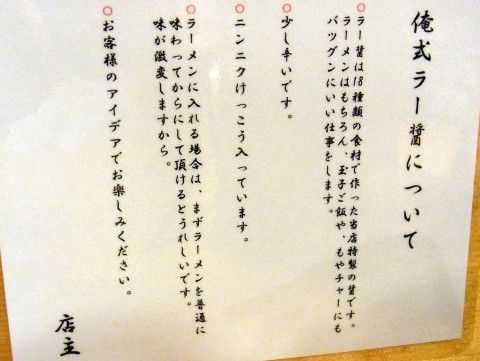 俺式ラー醤について
○ラー醤は18種類の食材で作った当店特製の醤です。
ラーメンはもちろん、玉子ご飯や、もやチャーにも
バツグンにいい仕事をします。
○少し辛いです。
○ニンニクけっこう入っています。
○ラーメンに入れる場合は、まずラーメンを普通に
味わってからにして頂けるとうれしいです。
味が激変しますから。
○お客様のアイデアでお楽しみください。
店主